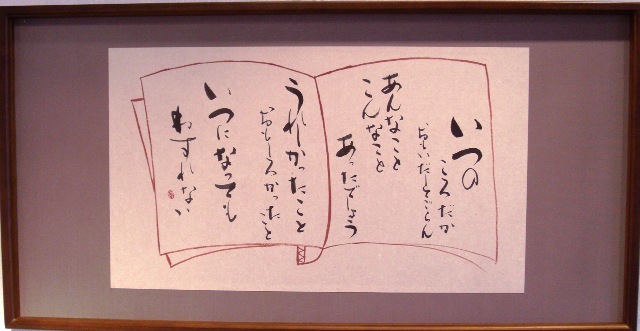 いつの
ことだか
おもいだしてごらん
あんなこと
こんなこと
あったでしょう
うれしかったこと
おもしろかったこと
いつになっても
わすれない